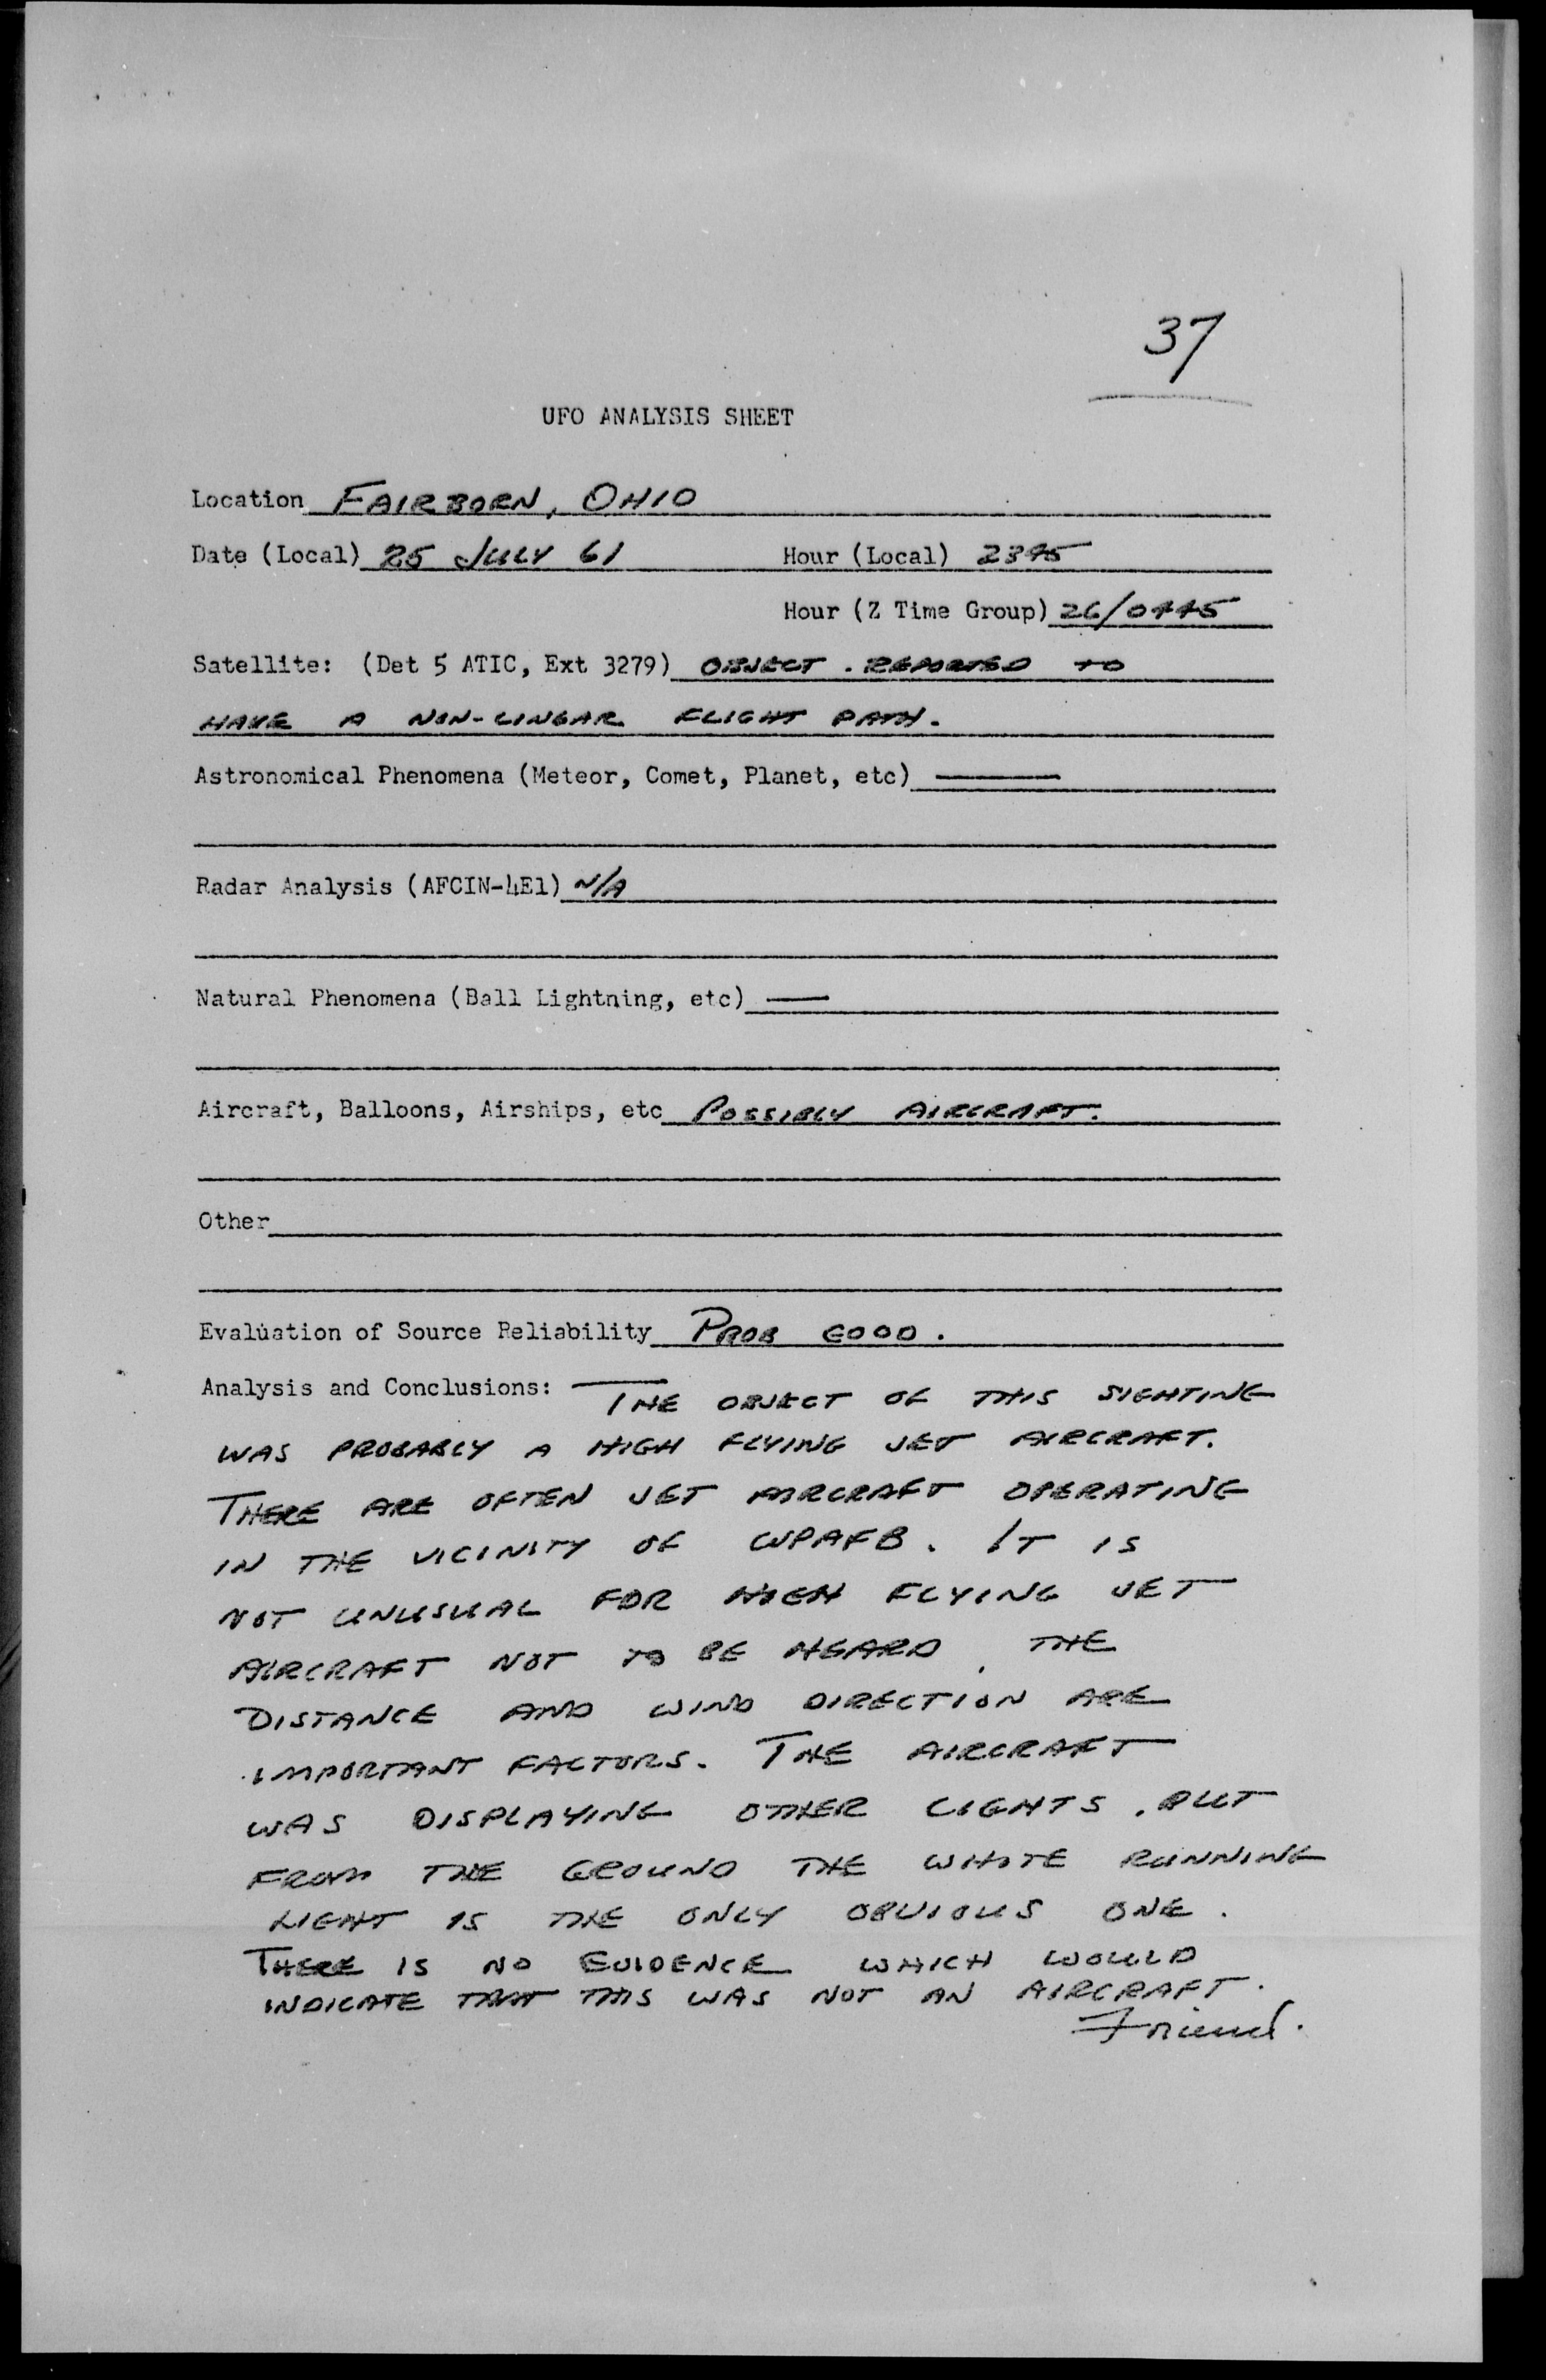 37
UFO ANALYSIS SHEET
Location FAIRBORN, OHIO
Date (Local) 25 JULY 61 Hour (Local) 2345
Hour (Z Time Group) 26/0445
Satellite: (Det 5 ATIC, Ext 3279) OBJECT . REPORTED TO
HAVE A NON-LINEAR FLIGHT PATH.
Astronomical Phenomena (Meteor, Comet, Planet, etc) —
Radar Analysis (AFCIN-4E1) N/A
Natural Phenomena (Ball Lightning, etc) —
Aircraft, Balloons, Airships, etc POSSIBLY AIRCRAFT.
Other
Evaluation of Source Reliability PROB GOOD.
Analysis and Conclusions: THE OBJECT OF THIS SIGHTING
WAS PROBABLY A HIGH FLYING JET AIRCRAFT.
THERE ARE OFTEN JET AIRCRAFT OPERATING
IN THE VICINITY OF WPAFB. IT IS
NOT UNUSUAL FOR HIGH FLYING JET
AIRCRAFT NOT TO BE HEARD, THE
DISTANCE AND WIND DIRECTION ARE
IMPORTANT FACTORS. THE AIRCRAFT
WAS DISPLAYING OTHER LIGHTS, BUT
FROM THE GROUND THE WHITE RUNNING
LIGHT IS THE ONLY OBVIOUS ONE.
THERE IS NO EVIDENCE WHICH WOULD
INDICATE THAT THIS WAS NOT AN AIRCRAFT.
Friend.